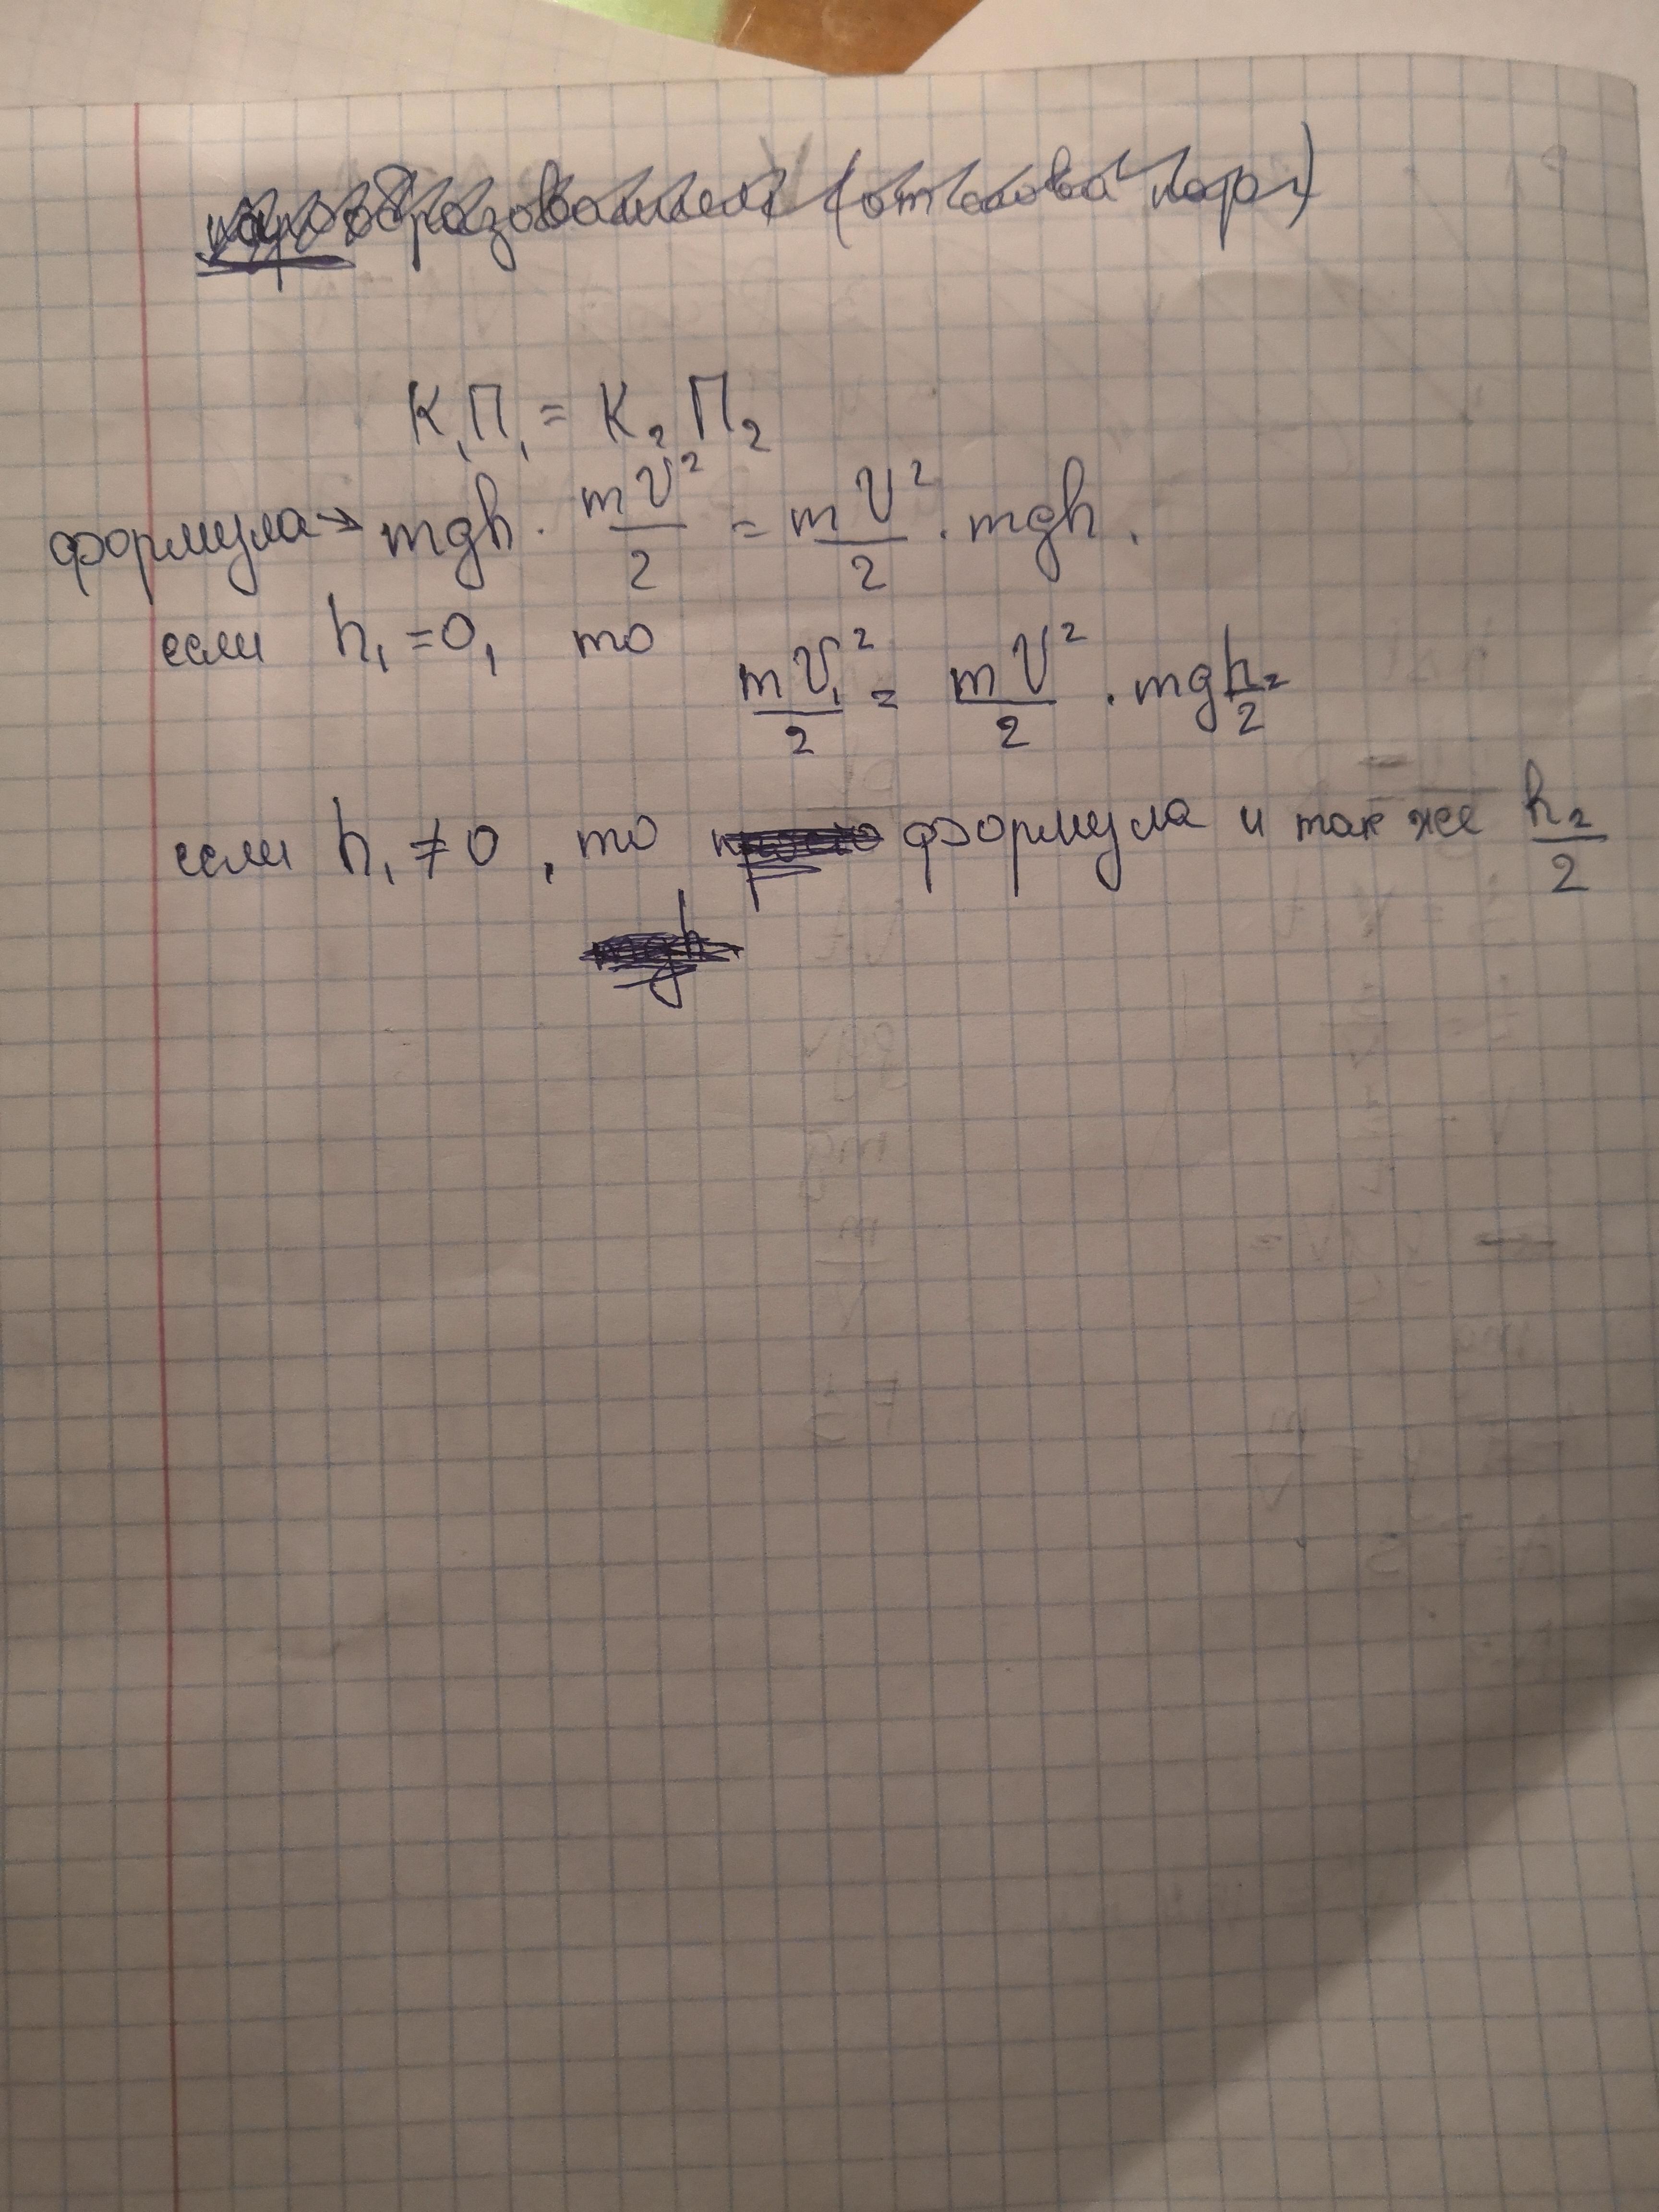 парообразования (от слова пар)
К₁П₁ = К₂П₂
формула → mgh · mV²/2 = mV²/2 · mgh.
если h₁ = 0, то mV₁²/2 = mV²/2 · mgh₂/2
если h₁ ≠ 0, то формула и так же h₂/2
mgh